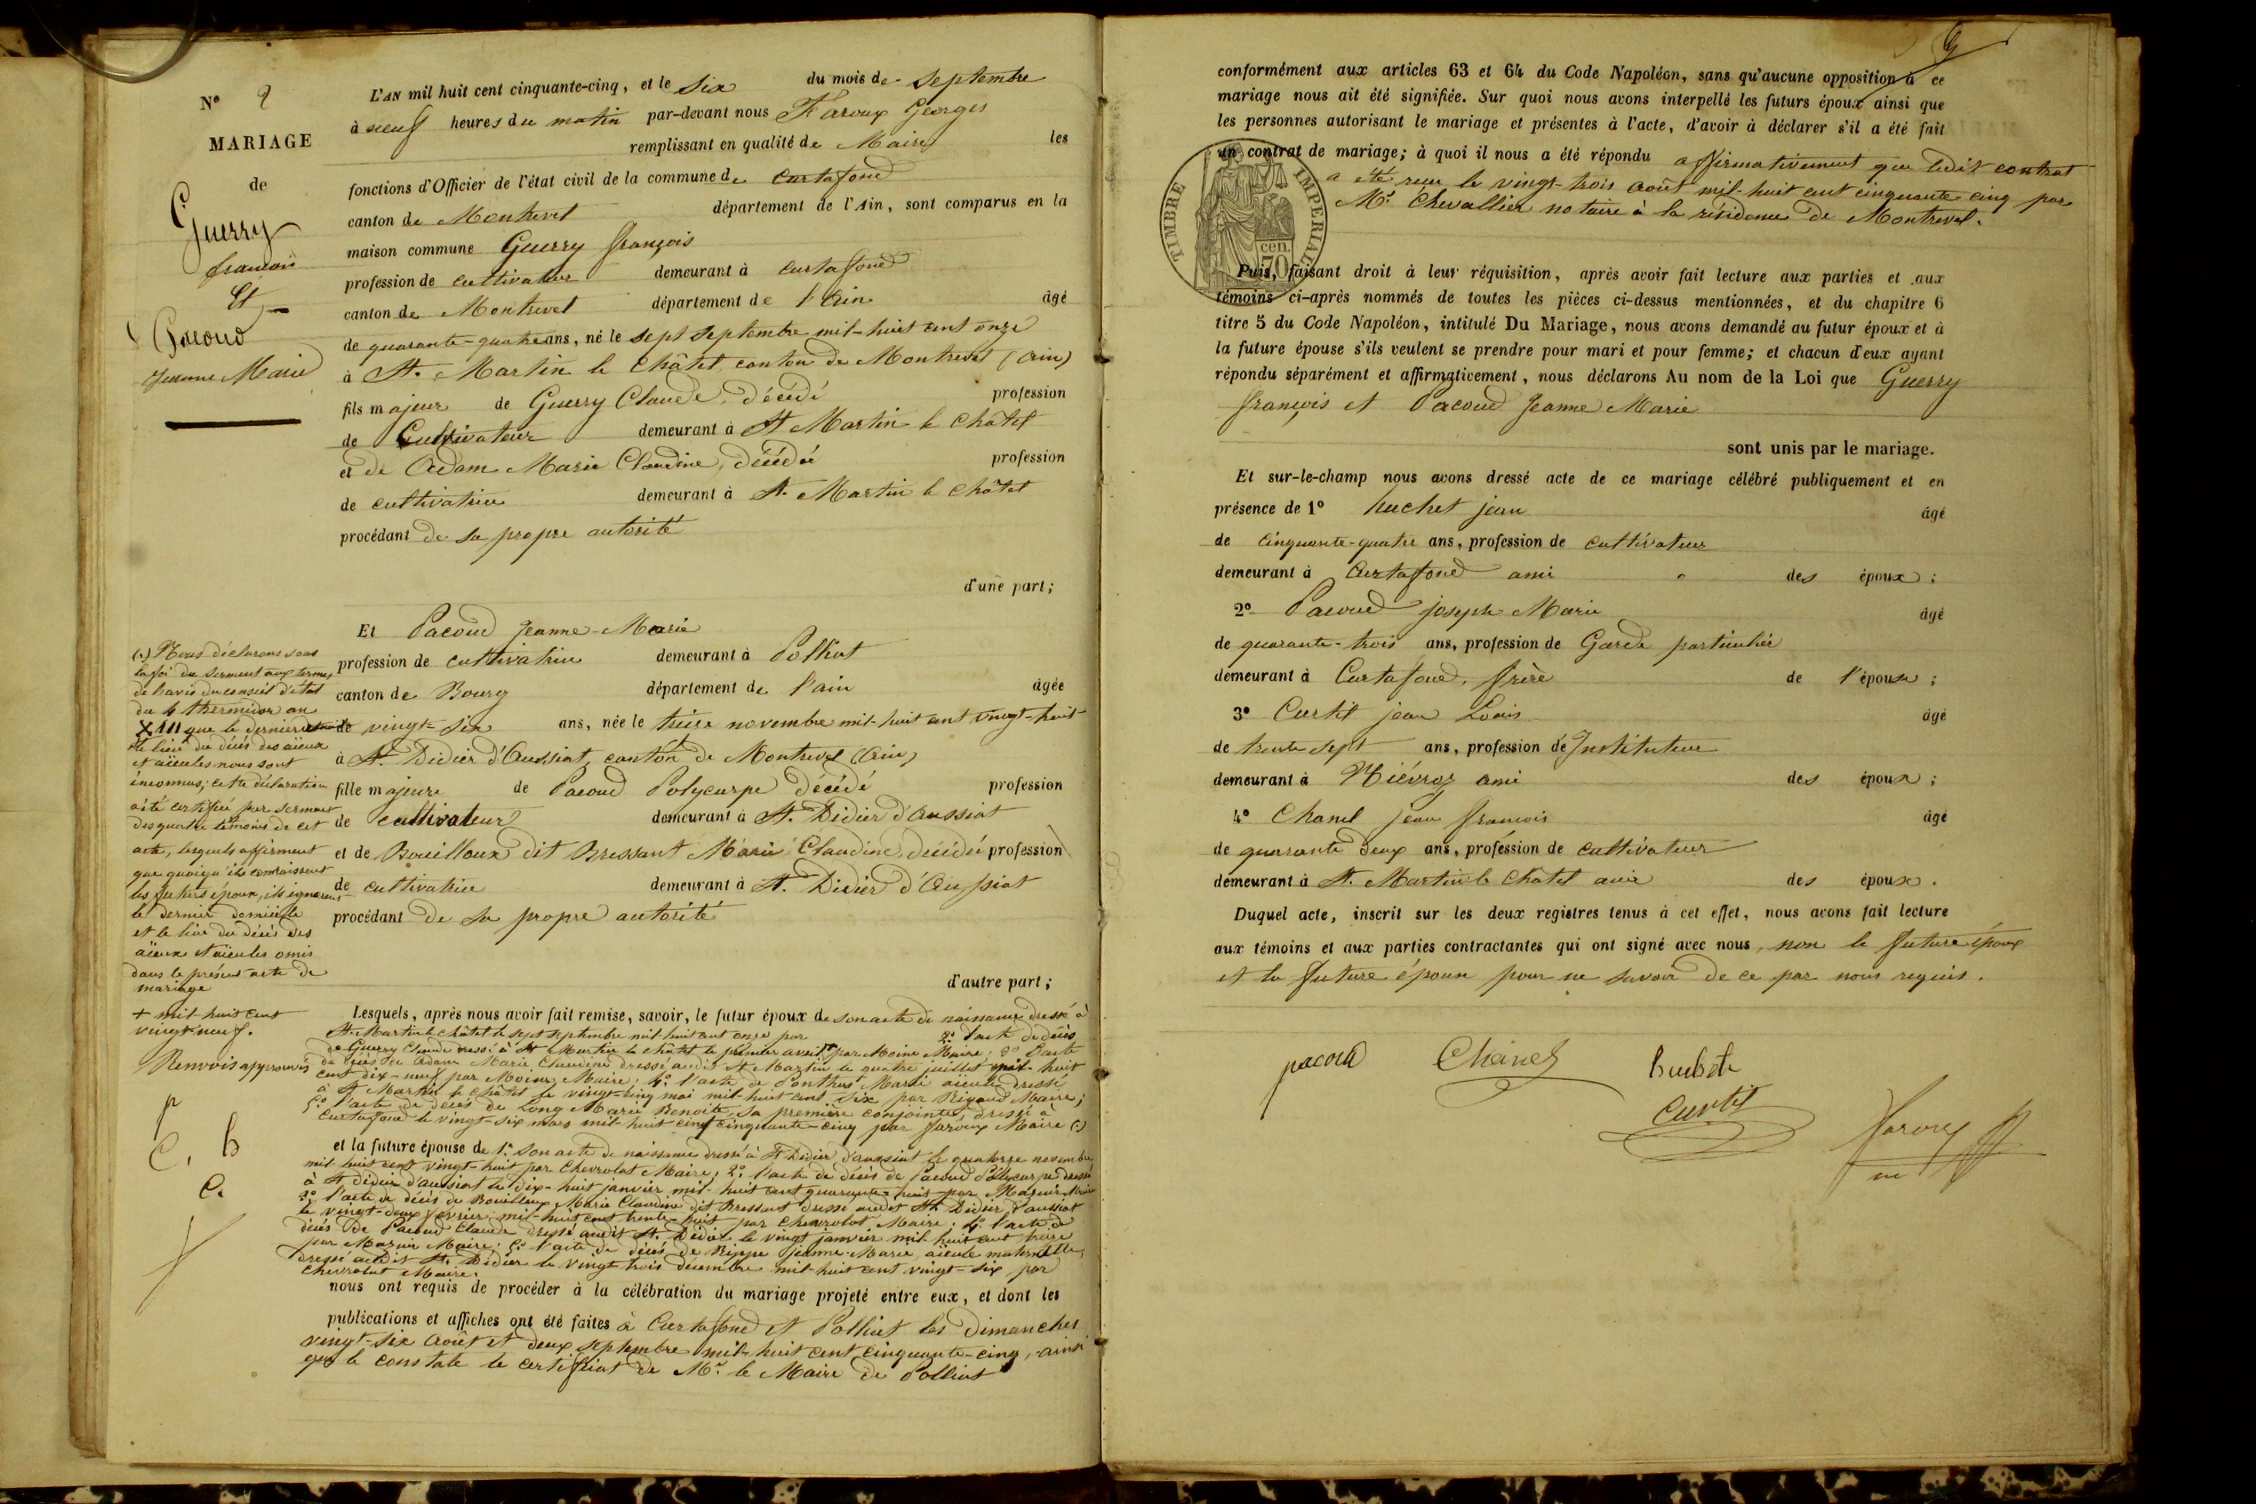 N° 9
MARIAGE
de
Guerry
françois
Et
Pacoud
Jeanne Marie
L'AN mil huit cent cinquante-cinq, et le six du mois de septembre
à neuf heures du matin par-devant nous Faroux Georges
remplissant en qualité de Maire les
fonctions d'Officier de l'état civil de la commune de Curtafond
canton de Montrevel département de l'Ain, sont comparus en la
maison commune Guerry françois
profession de cultivateur demeurant à Curtafond
canton de Montrevel département de l'Ain âgé
de quarante-quatre ans, né le sept septembre mil-huit cent onze
à St. Martin le Châtel canton de Montrevel (Ain)
fils majeur de Guerry Claude, décédé profession
de Cultivateur demeurant à St Martin le Châtel
et de Adam Marie Claudine, décédée profession
de cultivatrice demeurant à St. Martin le Châtel
procédant de sa propre autorité
d'une part;
Et Pacoud Jeanne-Marie
profession de cultivatrice demeurant à Polliat
canton de Bourg département de l'ain âgée
de vingt-six ans, née le treize novembre mil-huit cent vingt-huit
à St. Didier d'Aussiat, canton de Montrevel (Ain)
fille majeure de Pacoud Polycarpe décédé profession
de cultivateur demeurant à St. Didier d'Aussiat
et de Bouilloux dit Bressant Marie Claudine, décédée profession
de cultivatrice demeurant à St. Didier d'Aussiat
procédant de sa propre autorité
d'autre part;
(.) Nous déclarons sous
la foi du serment aux termes
de l'avis du conseil d'état
du 4 thermidor an
XIII que le dernier
et le lieu du décès des aïeux
et aïeules nous sont
inconnus; cette déclaration
a été certifiée par serment
des quatre témoins de cet
acte, lesquels affirment
que quoiqu'ils connaissent
les futurs époux, ils ignorent
le dernier domicile
et le lieu du décès des
aïeux et aïeules omis
dans le présent acte de
mariage
+ mil huit cent
vingt-neuf.
Renvois approuvés
p
C. h
C.
Lesquels, après nous avoir fait remise, savoir, le futur époux de son acte de naissance dressé à
St. Martin le châtel le sept septembre mil huit cent onze par 2° l'acte de décès
de Guerry Claude dressé à St Martin le châtel le premier avril + par Moine Maire; 3° l'acte
de décès de Adam Marie Claudine dressé audit St Martin le quatre juillet mil-huit
cent dix-neuf par Moine, Maire; 4° l'acte de Ponthus Marie aïeule dressé
à St Martin le châtel le vingt-cinq mai mil-huit cent six par Rigaud Maire;
5° l'acte de décès de Long Marie Benoîte, sa première conjointe, dressé à
Curtafond le vingt-six mars mil-huit cent cinquante-cinq par Faroux Maire (.)
et la future épouse de 1° Son acte de naissance dressé à St Didier d'aussiat le quatorze novembre
mil huit cent vingt-huit par Chevrolat Maire; 2° l'acte de décès de Pacoud Polycarpe dressé
à St Didier d'aussiat le dix-huit janvier mil-huit cent quarante-huit par Mazuir Maire
3° l'acte de décès de Bouilloux Marie Claudine dit Bressant dressé audit St. Didier d'aussiat
le vingt-deux février mil-huit cent trente-huit par Chevrolat Maire; 4° l'acte de
décès de Pacoud Claude dressé audit St. Didier le vingt janvier mil huit cent treize
par Mazuir Maire; 5° l'acte de décès de Rippe Jeanne-Marie, aïeule maternelle,
dressé audit St. Didier le vingt-trois décembre mil-huit cent vingt-six par
Chevrolat Maire.
nous ont requis de procéder à la célébration du mariage projeté entre eux, et dont les
publications et affiches ont été faites à Curtafond et Polliat les Dimanches
vingt-six Août et deux septembre mil-huit cent cinquante-cinq, ainsi
que le constate le certificat de Mr. le Maire de Polliat
conformément aux articles 63 et 64 du Code Napoléon, sans qu'aucune opposition à ce
mariage nous ait été signifiée. Sur quoi nous avons interpellé les futurs époux ainsi que
les personnes autorisant le mariage et présentes à l'acte, d'avoir à déclarer s'il a été fait
un contrat de mariage; à quoi il nous a été répondu affirmativement que ledit contrat
a été reçu le vingt-trois août mil-huit cent cinquante cinq par
Mr. Chevallier notaire à la résidence de Montrevel.
TIMBRE IMPERIAL
70 cen.
Puis, faisant droit à leur réquisition, après avoir fait lecture aux parties et aux
témoins ci-après nommés de toutes les pièces ci-dessus mentionnées, et du chapitre 6
titre 5 du Code Napoléon, intitulé Du Mariage, nous avons demandé au futur époux et à
la future épouse s'ils veulent se prendre pour mari et pour femme; et chacun d'eux ayant
répondu séparément et affirmativement, nous déclarons Au nom de la Loi que Guerry
françois et Pacoud Jeanne Marie
sont unis par le mariage.
Et sur-le-champ nous avons dressé acte de ce mariage célébré publiquement et en
présence de 1° huchet jean âgé
de cinquante-quatre ans, profession de cultivateur
demeurant à Curtafond ami des époux;
2° Pacoud joseph Marie âgé
de quarante-trois ans, profession de Garde particulier
demeurant à Curtafond, frère de l'épouse;
3° Curtil jean Louis âgé
de trente sept ans, profession de Instituteur
demeurant à Niévroz ami des époux;
4° Chanel jean françois âgé
de quarante deux ans, profession de cultivateur
demeurant à St. Martin le Châtel ami des époux.
Duquel acte, inscrit sur les deux registres tenus à cet effet, nous avons fait lecture
aux témoins et aux parties contractantes qui ont signé avec nous, non le futur époux
et la future épouse pour ne savoir de ce par nous requis.
pacoud Chanel huchet
Curtil
Faroux